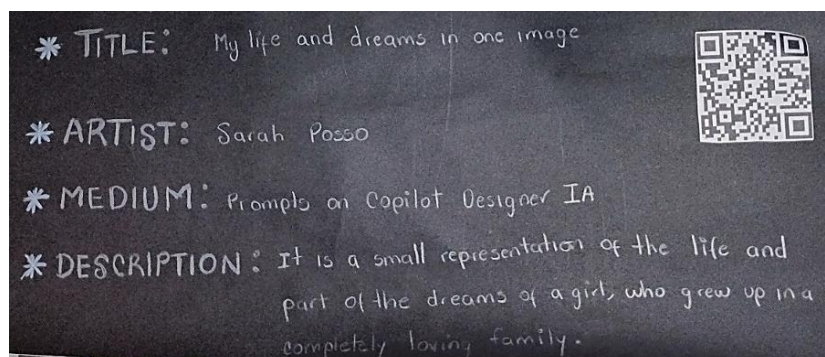 * TITLE: My life and dreams in one image
* ARTIST: Sarah Posso
* MEDIUM: Prompts on Copilot Designer IA
* DESCRIPTION: It is a small representation of the life and
part of the dreams of a girl, who grew up in a
completely loving family.